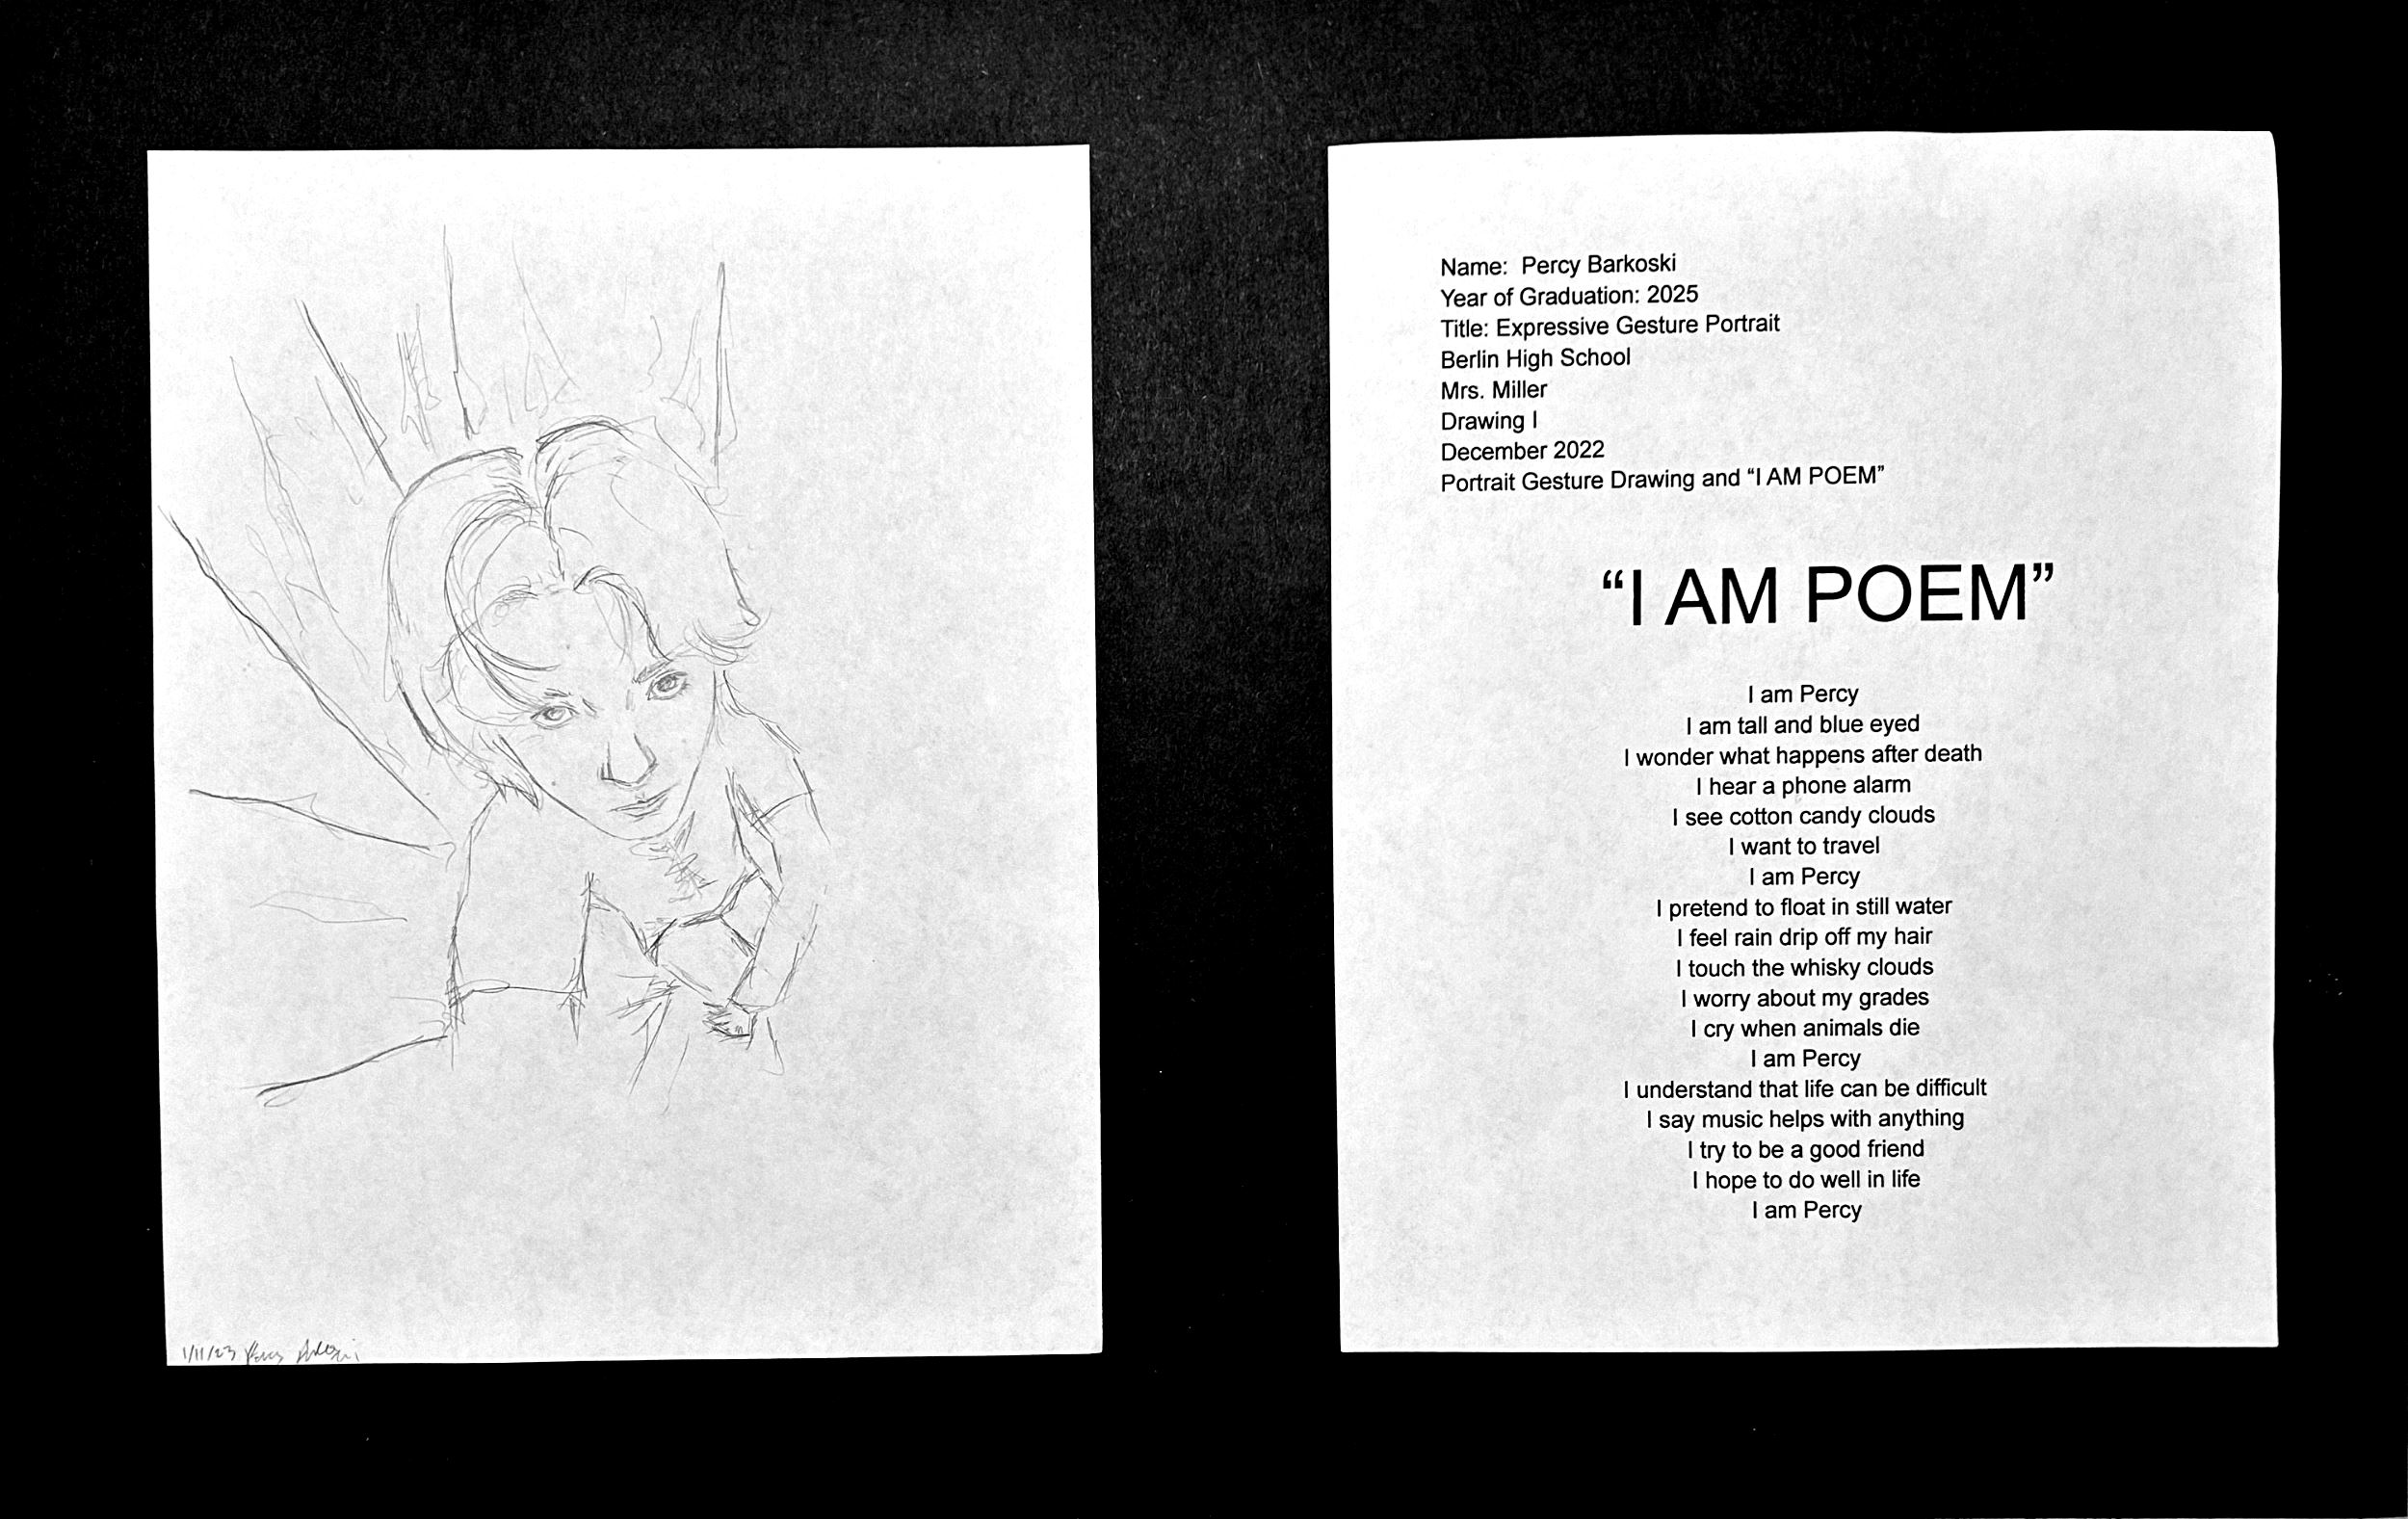 Name:  Percy Barkoski
Year of Graduation: 2025
Title: Expressive Gesture Portrait
Berlin High School
Mrs. Miller
Drawing I
December 2022
Portrait Gesture Drawing and “I AM POEM”
“I AM POEM”
I am Percy
I am tall and blue eyed
I wonder what happens after death
I hear a phone alarm
I see cotton candy clouds
I want to travel
I am Percy
I pretend to float in still water
I feel rain drip off my hair
I touch the whisky clouds
I worry about my grades
I cry when animals die
I am Percy
I understand that life can be difficult
I say music helps with anything
I try to be a good friend
I hope to do well in life
I am Percy
1/11/23